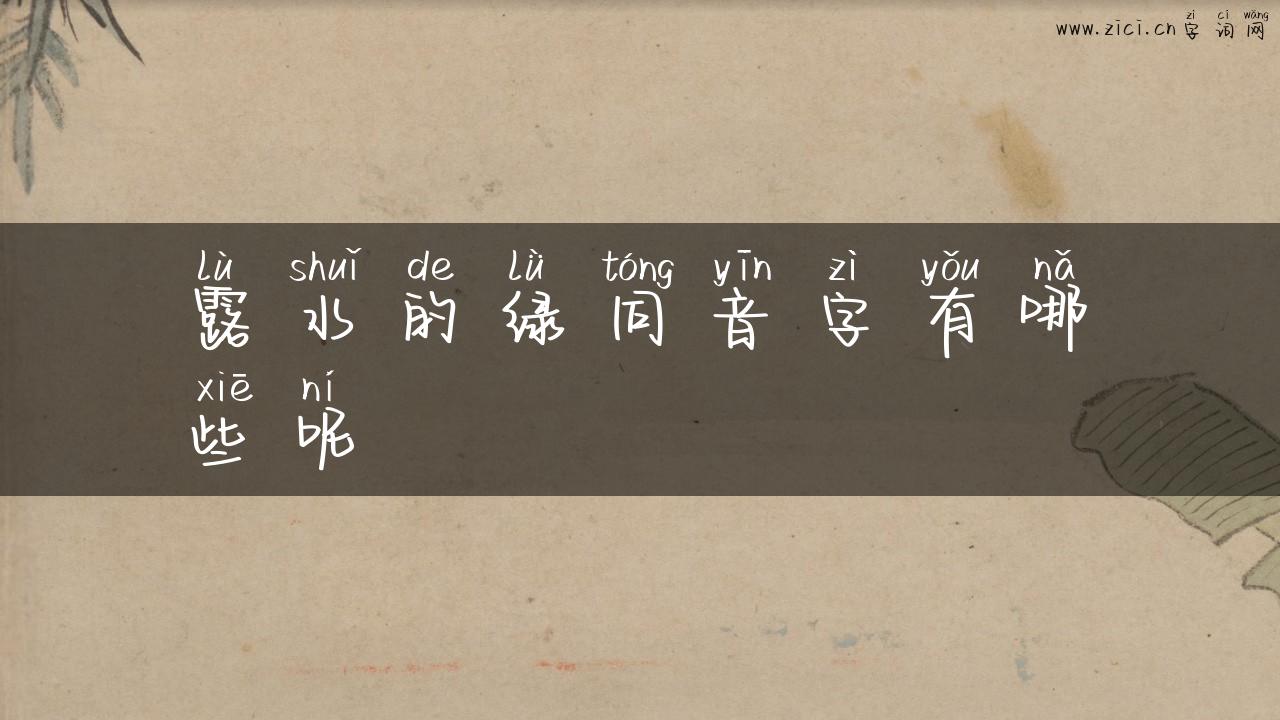 zì cí wǎng
www.zici.cn 字词网
lù shuǐ de lǜ tóng yīn zì yǒu nǎ
露水的绿同音字有哪
xiē ní
些呢